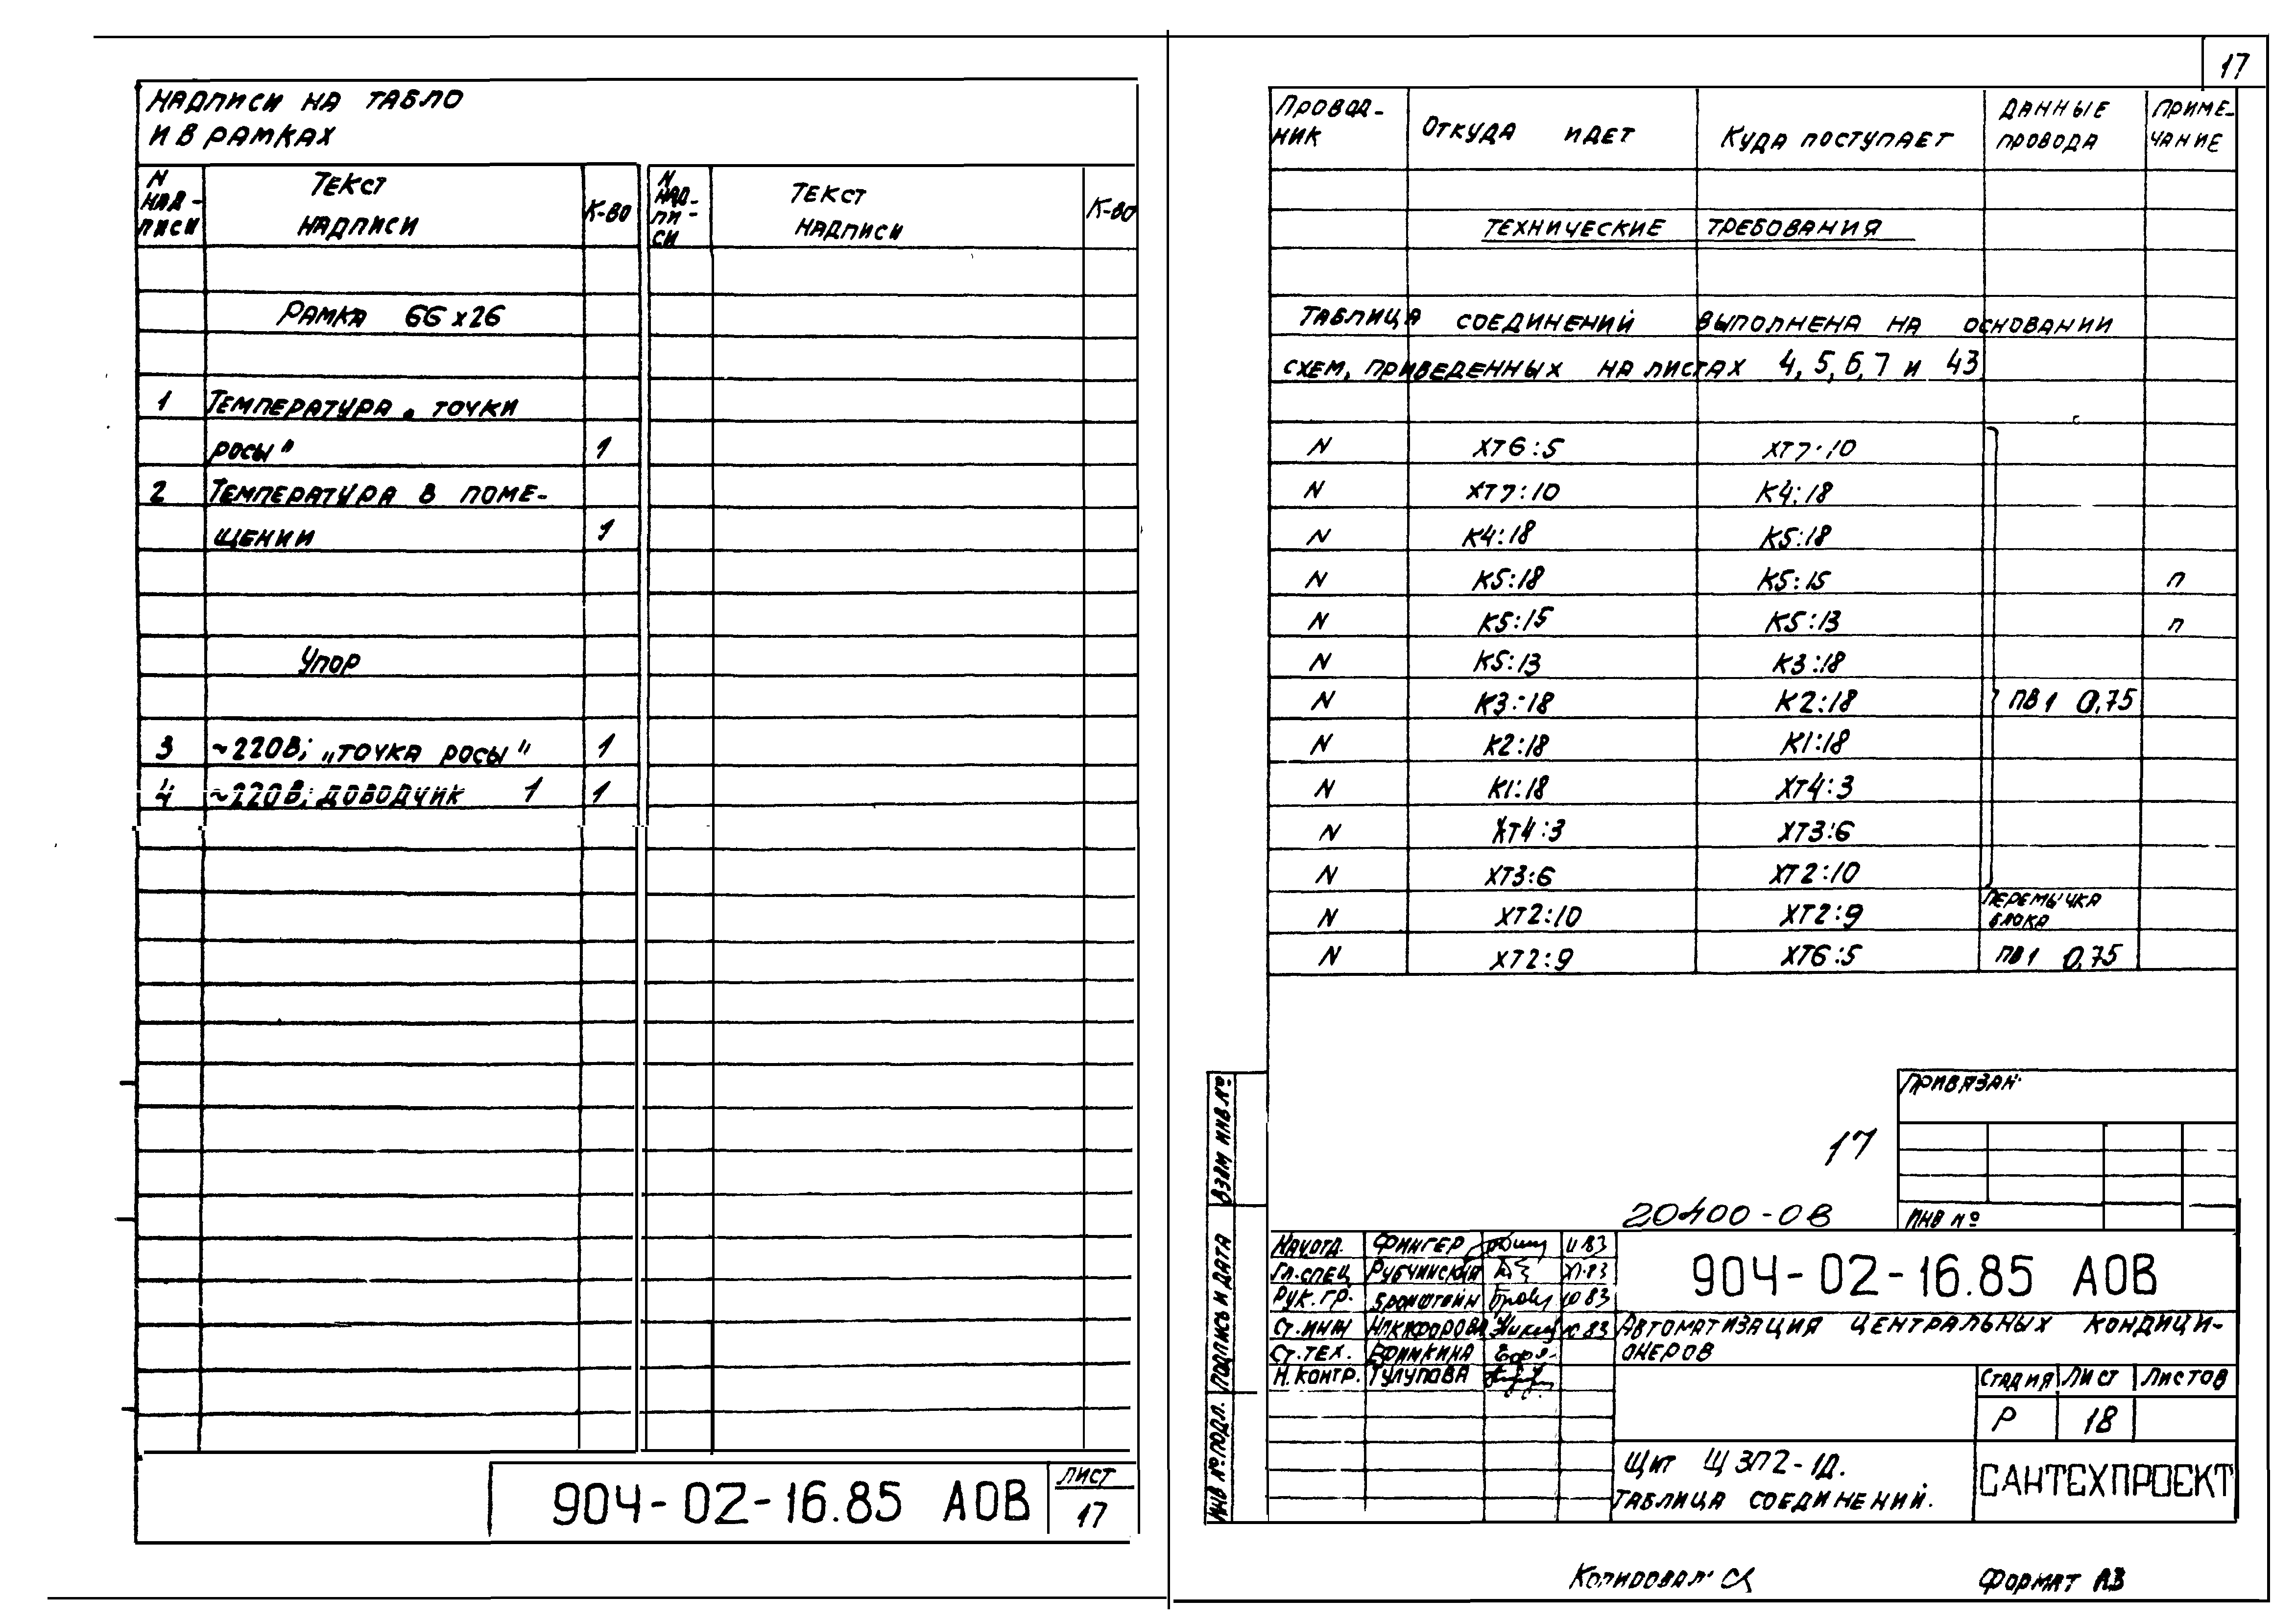 17
НАДПИСИ НА ТАБЛО
И В РАМКАХ
N НАД-ПИСИ ТЕКСТ НАДПИСИ К-ВО N НАД-ПИ-СИ ТЕКСТ НАДПИСИ К-ВО
РАМКА 66х26
1 ТЕМПЕРАТУРА „ ТОЧКИ
РОСЫ" 1
2 ТЕМПЕРАТУРА В ПОМЕ-
ЩЕНИИ 1
УПОР
3 ~220В; „ТОЧКА РОСЫ" 1
4 ~220В; ДОВОДЧИК 1 1
904-02-16.85 АОВ
ЛИСТ
17
ПРОВОД-НИК ОТКУДА ИДЕТ КУДА ПОСТУПАЕТ ДАННЫЕ ПРОВОДА ПРИМЕ-ЧАНИЕ
ТЕХНИЧЕСКИЕ ТРЕБОВАНИЯ
ТАБЛИЦА СОЕДИНЕНИЙ ВЫПОЛНЕНА НА ОСНОВАНИИ
СХЕМ, ПРИВЕДЕННЫХ НА ЛИСТАХ 4, 5, 6, 7 И 43
N ХТ6:5 ХТ7:10
N ХТ7:10 К4:18
N К4:18 К5:18
N К5:18 К5:15 П
N К5:15 К5:13 П
N К5:13 К3:18
N К3:18 К2:18 ПВ1 0,75
N К2:18 К1:18
N К1:18 ХТ4:3
N ХТ4:3 ХТ3:6
N ХТ3:6 ХТ2:10
N ХТ2:10 ХТ2:9 ПЕРЕМЫЧКА БЛОКА
N ХТ2:9 ХТ6:5 ПВ1 0,75
ПРИВЯЗАН
17
20400-08
ИНВ №
ВЗАМ ИНВ №
ПОДПИСЬ И ДАТА
ИНВ № ПОДЛ.
НАЧ ОТД. ФИНГЕР 11 83
ГЛ. СПЕЦ РУБЧИНСКИЙ XI.83
РУК. ГР. БРОНШТЕЙН 10 83
СТ. ИНЖ НИКИФОРОВА 10 83
СТ. ТЕХ. ЕФИМКИНА
Н. КОНТР. ТУЛУПОВА
904-02-16.85 АОВ
АВТОМАТИЗАЦИЯ ЦЕНТРАЛЬНЫХ КОНДИЦИ-
ОНЕРОВ
СТАДИЯ ЛИСТ ЛИСТОВ
Р 18
ЩИТ ЩЗП2-1Д.
ТАБЛИЦА СОЕДИНЕНИЙ.
САНТЕХПРОЕКТ
КОПИРОВАЛ:
ФОРМАТ А3